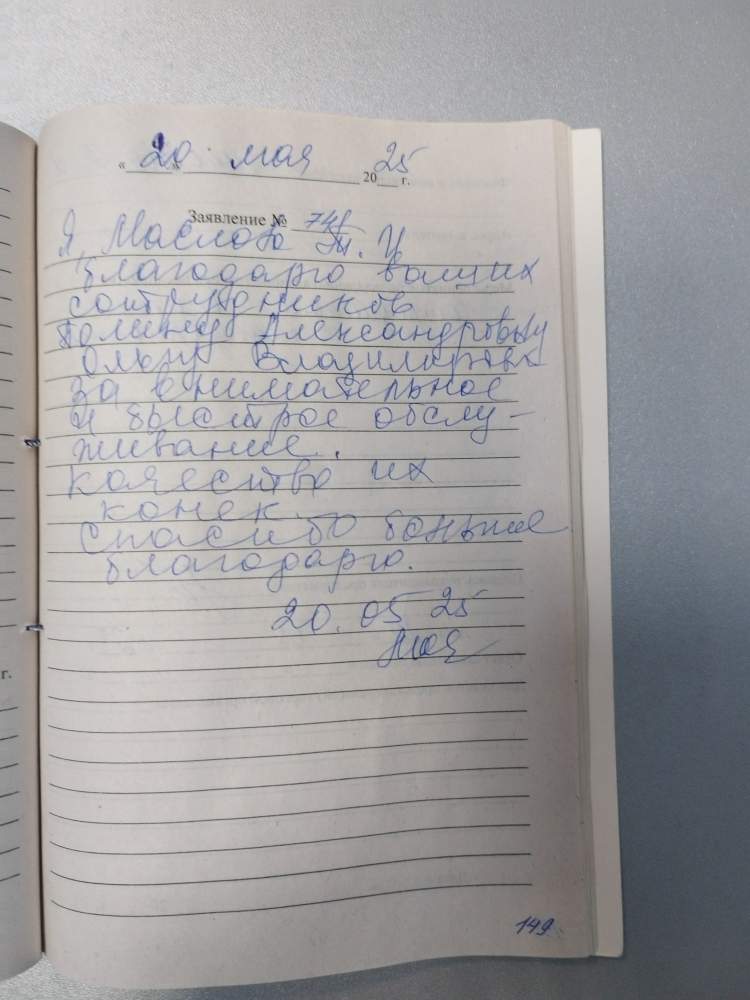 « 20 » мая 2025 г.
Заявление № 741
Я, Маслова Т. И.
благодарю ваших
сотрудников
Полину Александровну
Ольгу Владимировн
за внимательное
и быстрое обслу-
живание.
качество их
конек.
Спасибо большое
благодарю.
20. 05 25
г.
149